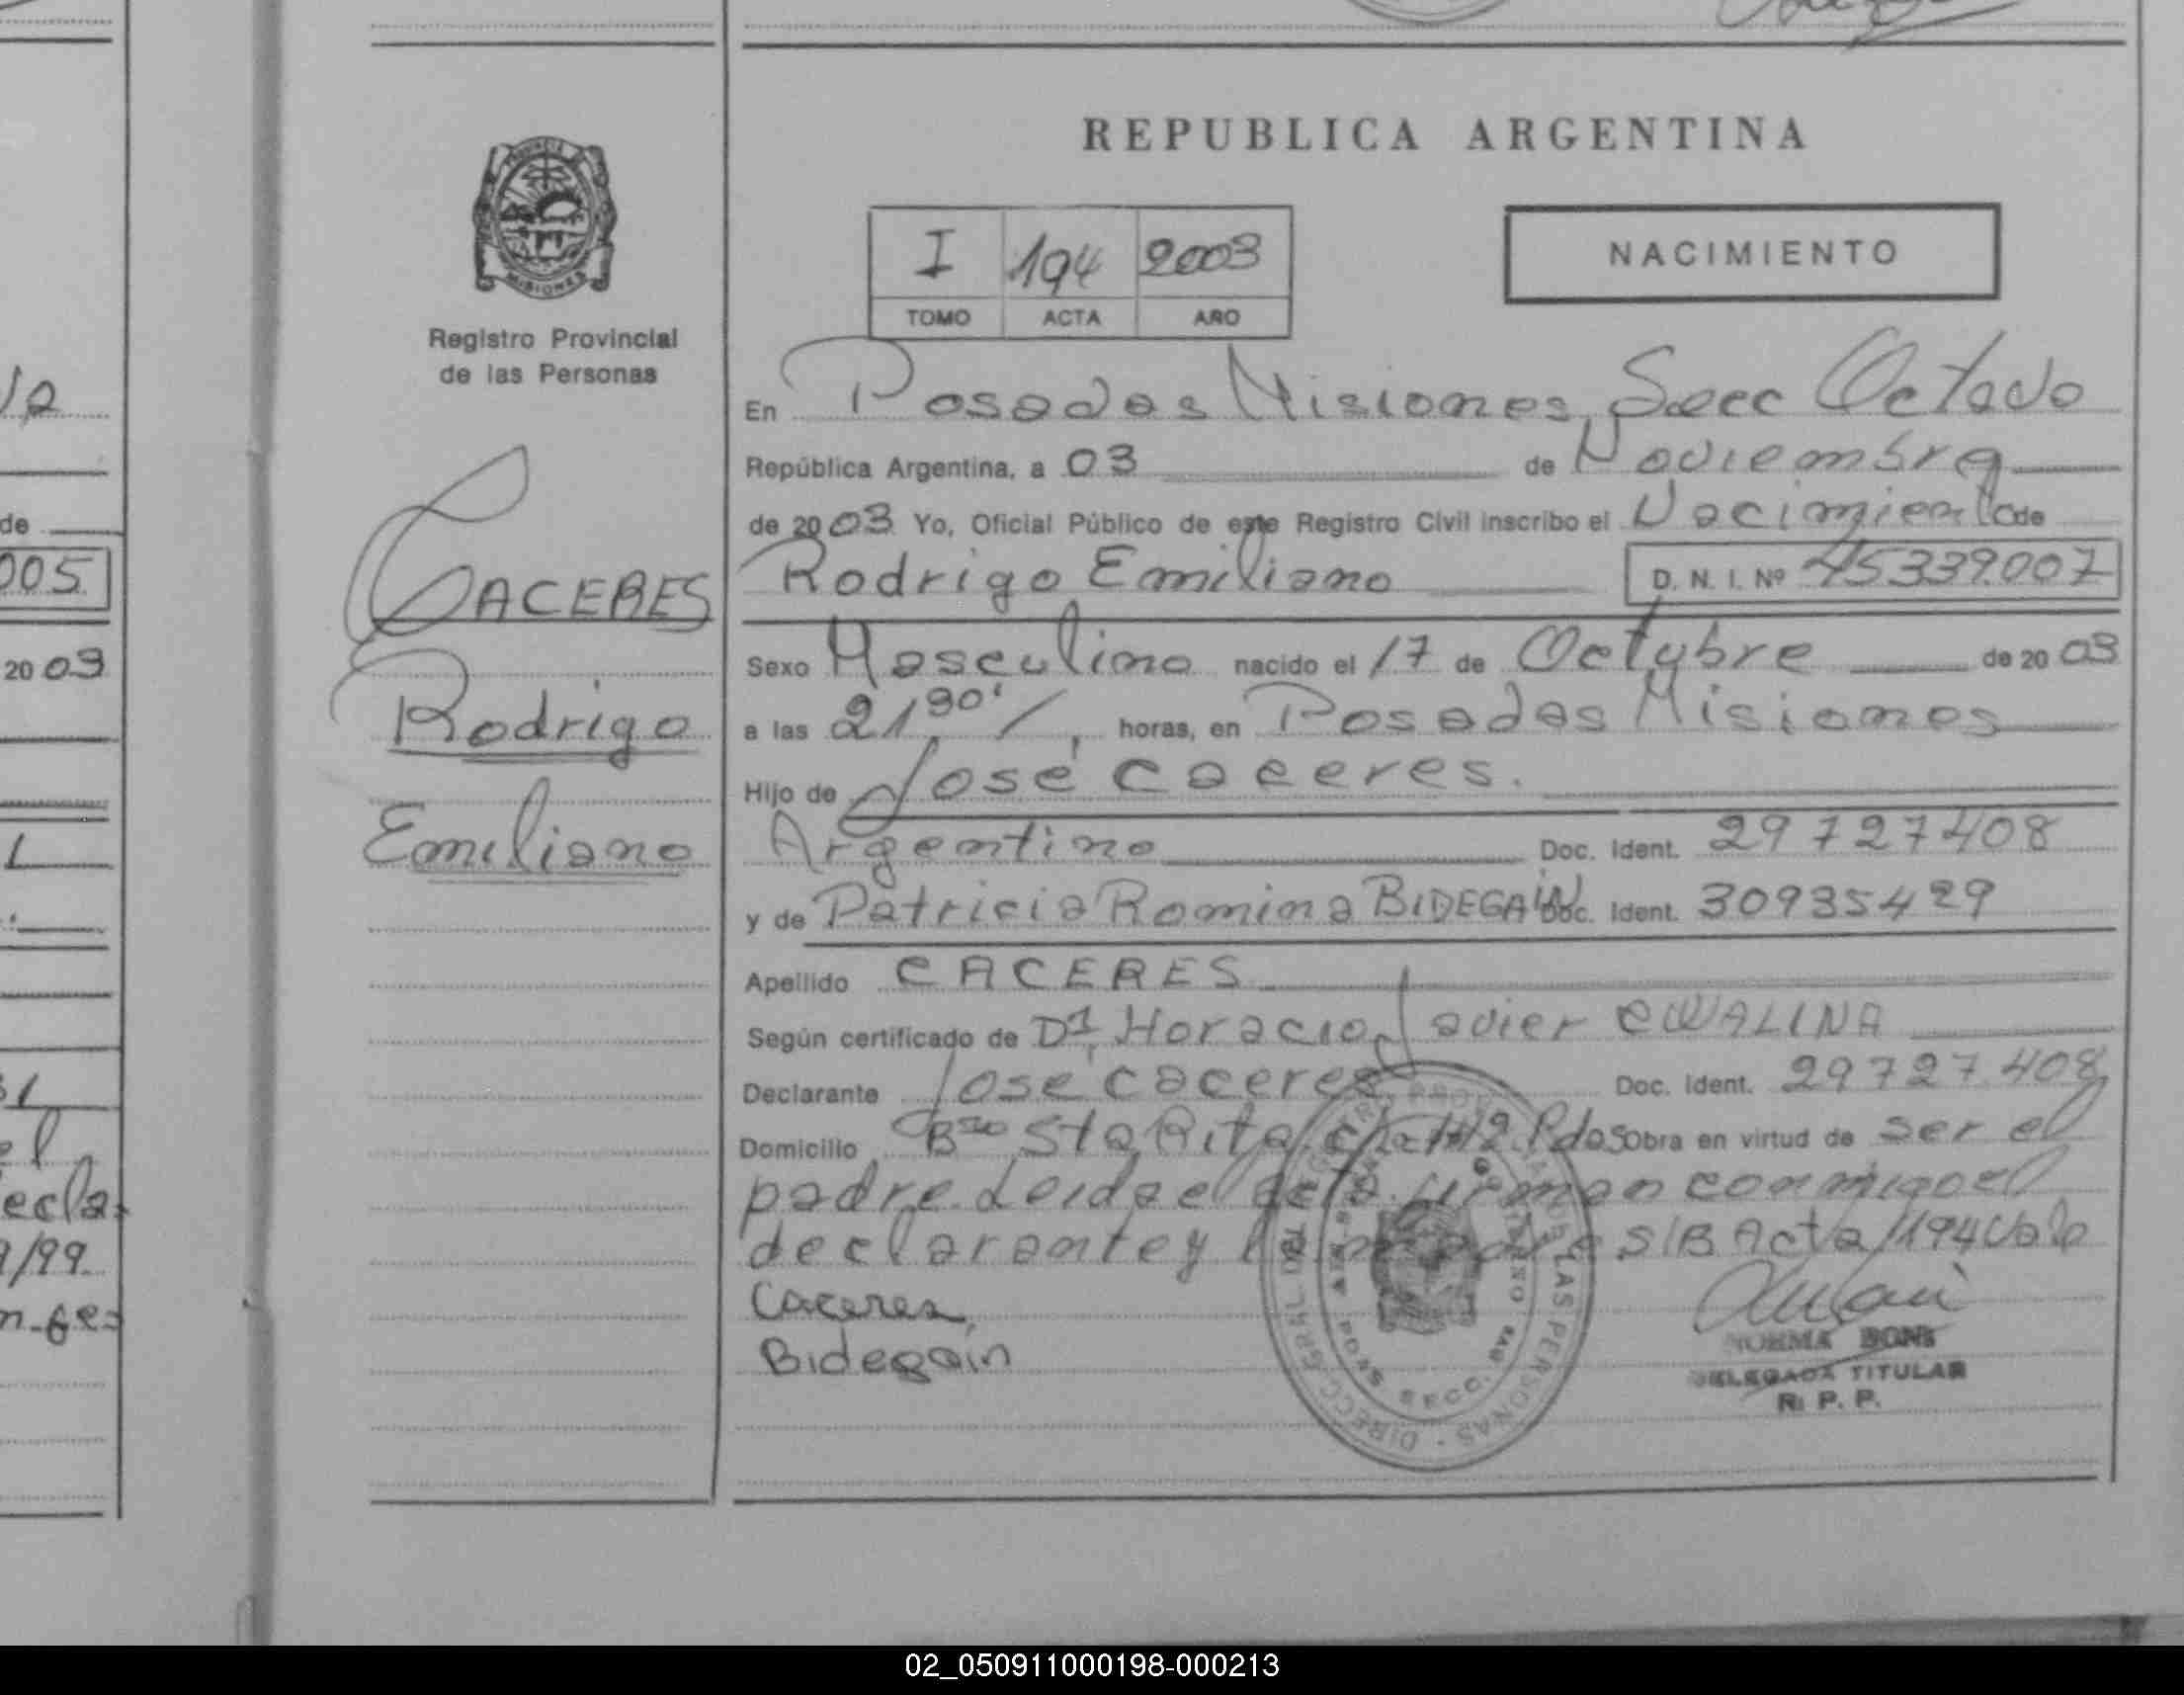 REPUBLICA ARGENTINA
I 194 2003
TOMO ACTA AÑO
NACIMIENTO
PROVINCIA DE
MISIONES
Registro Provincial
de las Personas
CACERES
Rodrigo
Emiliano
En Posadas Misiones, Secc Octava
República Argentina, a 03 de Noviembre
de 2003 Yo, Oficial Público de este Registro Civil inscribo el Nacimiento de
Rodrigo Emiliano D. N. I. Nº 45339.007
Sexo Masculino nacido el 17 de Octubre de 2003
a las 21,30' horas, en Posadas Misiones
Hijo de José Caceres.
Argentino Doc. Ident. 29727408
y de Patricia Romina BIDEGAIN Doc. Ident. 30935429
Apellido CACERES
Según certificado de Dr. Horacio Javier CWALINA
Declarante José Caceres Doc. Ident. 29727.408
Domicilio Bº Sta Rita Pdas Obra en virtud de ser el
padre. Leida el acta. firman conmigo el
declarante y S/B Acta/194 Vale
Caceres
Bidegain
NORMA BONI
DELEGADA TITULAR
R. P. P.
005
2003
ecla
1/99
02_050911000198-000213